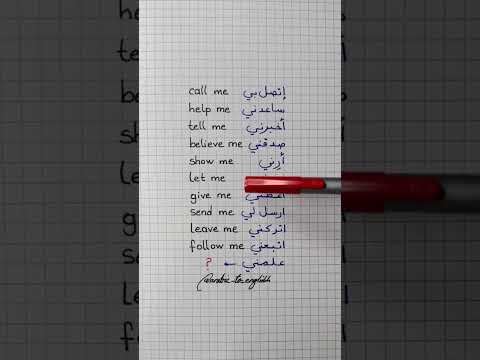 call me إتصل بي
help me ساعدني
tell me أخبرني
believe me صدقني
show me أرني
let me
give me أعطني
send me ارسل لي
leave me اتركني
follow me اتبعني
? ← علمني